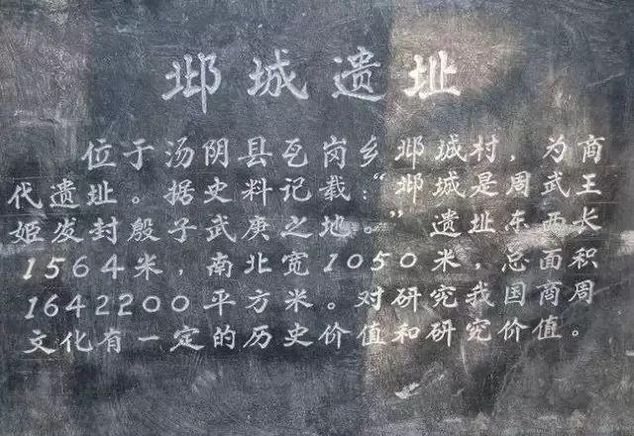 邶城遗址
位于汤阴县瓦岗乡邶城村，为商
代遗址。据史料记载：“邶城是周武王
姬发封殷子武庚之地。”遗址东西长
1564米，南北宽1050米，总面积
1642200平方米。对研究我国商周
文化有一定的历史价值和研究价值。